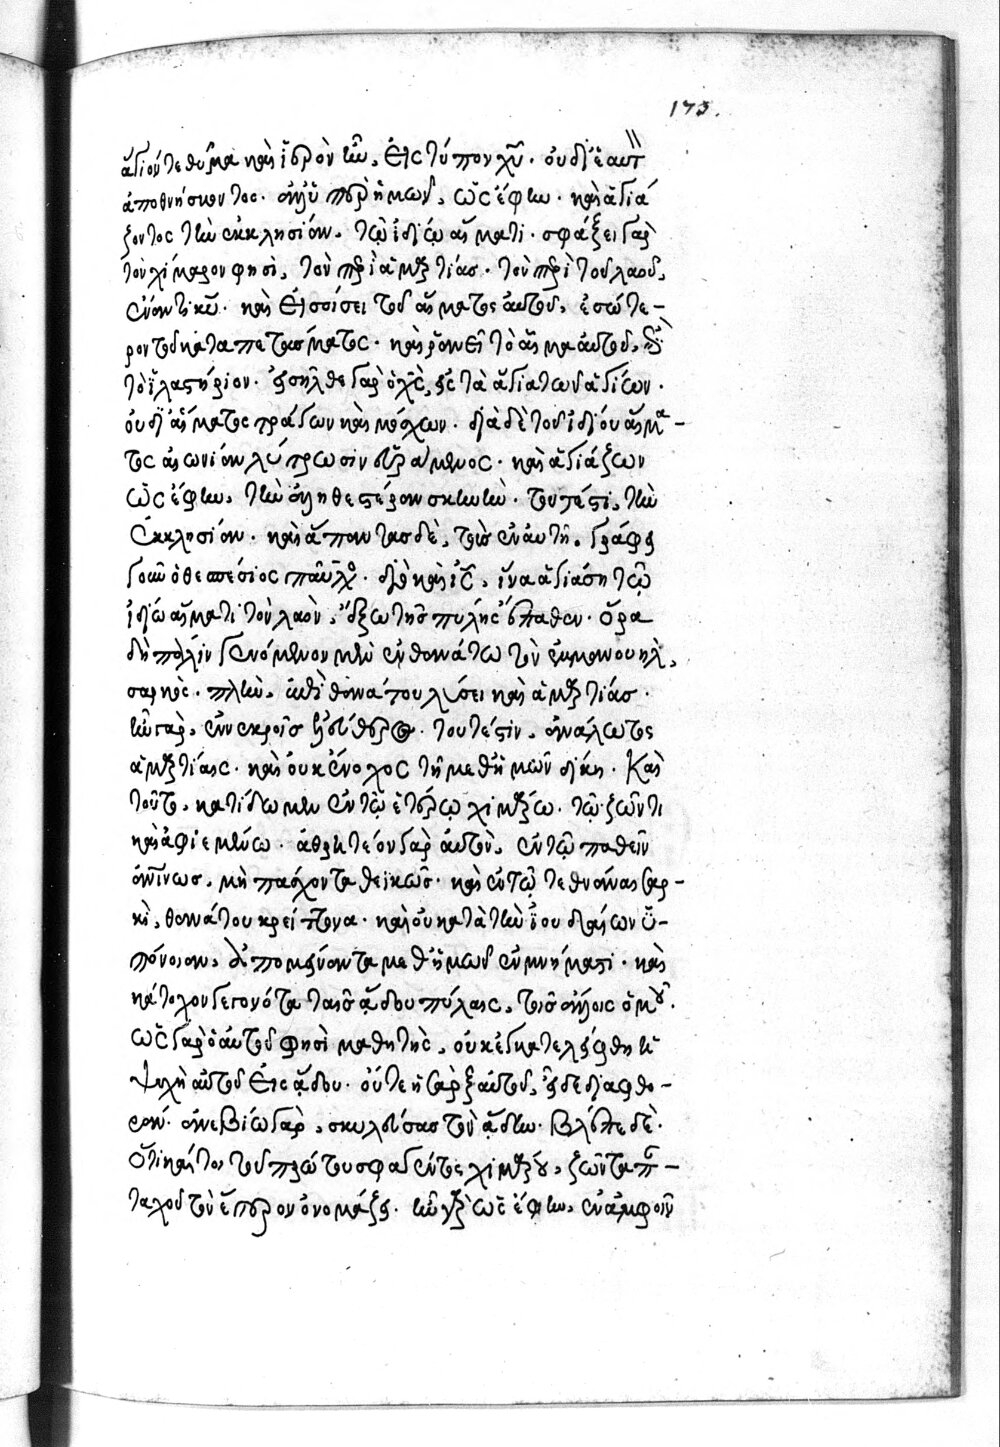 173.
ἅγιόν τε θῦμα καὶ ἱερὸν ἦν, εἰς τύπον χυ. οὐ δι ἑαυτ
ἀποθνήσκοντος. ἀλλ ὑπὲρ ἡμῶν, ὡς ἔφην. καὶ ἁγιά
ζοντος τὴν ἐκκλησίαν, τῷ ἰδίῳ αἵματι. σφάξει γὰρ
τὸν χίμαρον φησὶ, τὸν περὶ ἁμαρτίας. τὸν περὶ τοῦ λαοῦ,
ἔναντι κυ. καὶ εἰσοίσει τοῦ αἵματος αὐτοῦ, ἐσώτε-
ρον τοῦ καταπετάσματος. καὶ ῥανεῖ τὸ αἷμα αὐτοῦ, ἐπὶ
τὸ ἱλαστήριον. εἰσῆλθε γὰρ ὁ χς, εἰς τὰ ἅγια τῶν ἁγίων.
οὐ δι αἵματος τράγων καὶ μόσχων. διὰ δὲ τοῦ ἰδίου αἵμα-
τος αἰωνίαν λύτρωσιν εὑράμενος. καὶ ἁγιάζων
ὡς ἔφην, τὴν ἀληθεστέραν σκηνὴν. τουτέστι, τὴν
ἐκκλησίαν. καὶ ἅπαντας δὲ, τοὺς ἐν αὐτῆ. γράφει
γοῦν ὁ θεσπέσιος παῦλος. διὸ καὶ ις, ἵνα ἁγιάση τῶ
ἰδίω αἵματι τὸν λαὸν, ἔξω τῆς πύλης ἔπαθεν. ὅρα
δὴ πάλιν γενόμενον μὲν ἐν θανάτω τὸν ἐμμανουηλ,
σαρκὸς. πλὴν, ἐπὶ θανάτου λύσει καὶ ἁμαρτίας.
ἦν γὰρ, ἐν νεκροῖς ἐλεύθερος. τουτέστιν, ἀνάλωτος
ἁμαρτίαις. καὶ οὐκ ἔνοχος τῆ μεθ ἡμῶν δίκη. Καὶ
τοῦτο, κατίδωμεν ἐν τῷ ἑτέρῳ χιμάρω. τῷ ζῶντι
καὶ ἀφιεμένω. ἀθρητέον γὰρ αὐτὸν, ἐν τῷ παθεῖν
ἀνίνως, μὴ πάσχοντα θεικῶς. καὶ ἐν τῷ τεθνάναι σαρ-
κὶ, θανάτου κρείττονα. καὶ οὐ κατὰ τὴν ἰουδαίων ὑ-
πόνοιαν, ἀπομείναντα μεθ ἡμῶν ἐν μνήματι. καὶ
κάτοχον γεγονότα ταῖς ᾅδου πύλαις, τοῖς ἄλλοις ὁμοῦ.
ὡς γὰρ ὁ αὐτοῦ φησὶ μαθητὴς, οὐκ ἐγκατελείφθη ἡ
ψυχὴ αὐτοῦ εἰς ᾅδου. οὔτε ἡ σὰρξ αὐτοῦ, εἶδε διαφθο-
ράν. ἀνεβίω γὰρ, σκυλεύσας τὸν ᾅδην. βλέπε δὲ.
ὅτι καίτοι τοῦ πρώτου σφαγέντος χιμάρου, ζῶντα παν-
ταχοῦ τὸν ἕτερον ὀνομάζει. ἦν γὰρ ὡς ἔφην, ἐν ἀμφοῖν